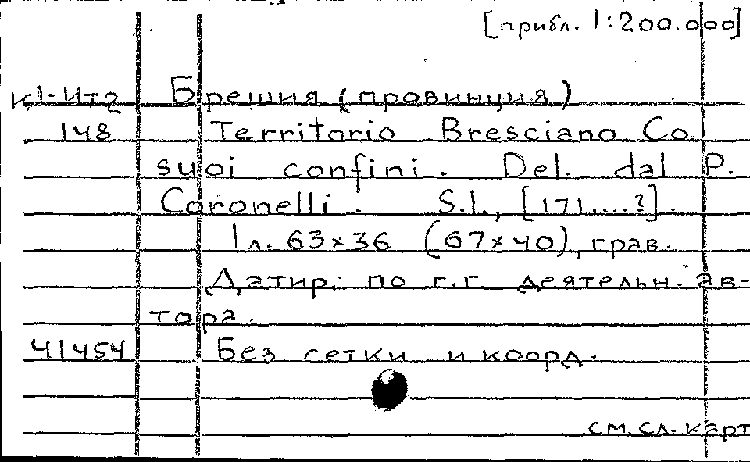 [прибл. 1:200.000]
К1-Ит2 Брешия (провинция)
148 Territorio Bresciano Co.
suoi confini. Del. dal P.
Coronelli. S.l., [171....?].
1 л. 63×36 (67×40), грав.
Датир. по г.г. деятельн. ав-
тора.
41454 Без сетки и коорд.
см. сл. карт